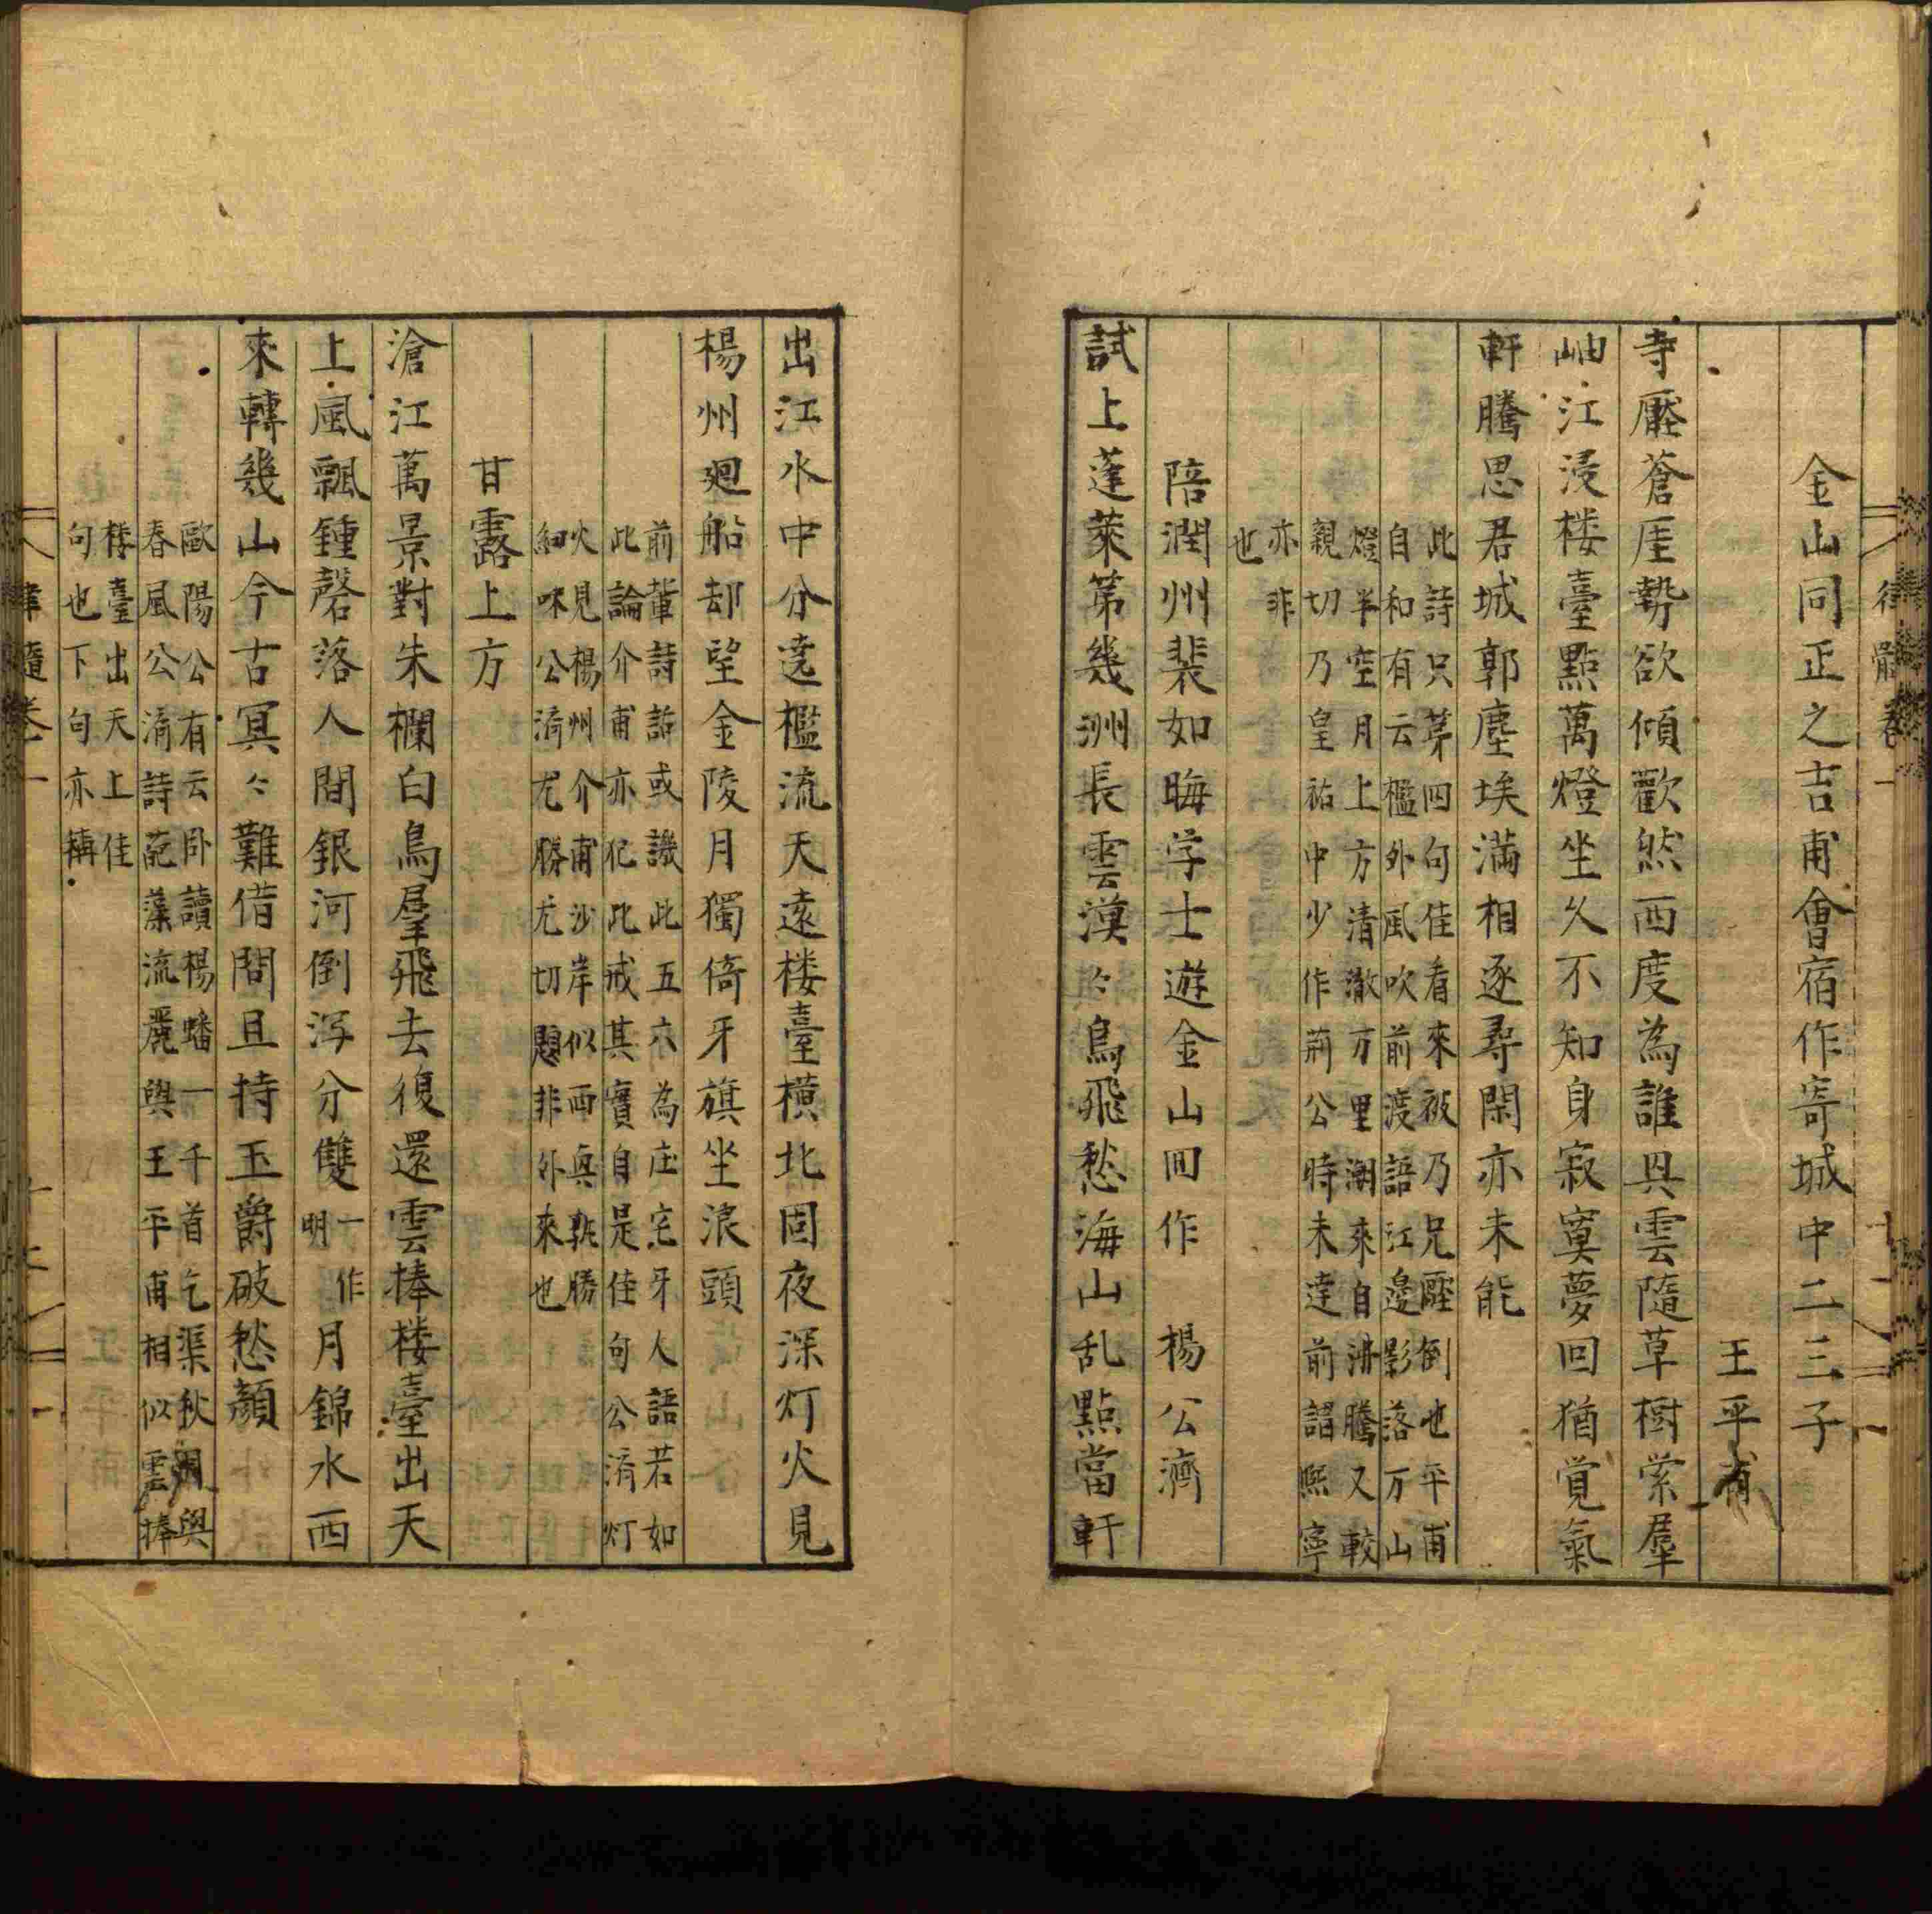 金山同正之吉甫會宿作寄城中二三子
王平甫
寺壓蒼厓勢欲傾歡然西度為誰興雲隨草樹縈羣
岫江浸楼臺點萬燈坐久不知身寂寞夢回猶覚氣
軒騰思君城郭塵埃滿相逐尋閑亦未能
此詩只苐四句佳看來被乃兄壓倒也平甫
自和有云檻外風吹前渡語江邊影落万山
燈半空月上方清澈万里潮來自沸騰又較
親切乃皇祐中少作荊公時未逹前謂熈寧
亦非
也
陪潤州裴如晦学士遊金山囬作 楊公濟
試上蓬萊苐幾洲長雲漠〻鳥飛愁海山乱點當軒
出江水中分遶檻流天遠楼臺橫北固夜深灯火見
楊州廻船却望金陵月獨倚牙旗坐浪頭
前輩詩話或譏此五六為庄宅牙人語若如
此論介甫亦犯此戒其實自是佳句公濟灯
火見楊州介甫沙岸似西興孰勝
細味公濟尤勝尤切題非外來也
甘露上方
滄江萬景對朱欄白鳥羣飛去復還雲捧楼臺出天
上風飄鍾磬落人間銀河倒泻分雙一作明月錦水西
來轉幾山今古冥〻難借問且持玉爵破愁顏
歐陽公有云卧讀楊蟠一千首乞渠秋月與
春風公濟詩葩藻流麗與王平甫相似雲捧
楼臺出天上佳
句也下句亦稱
律髓卷一